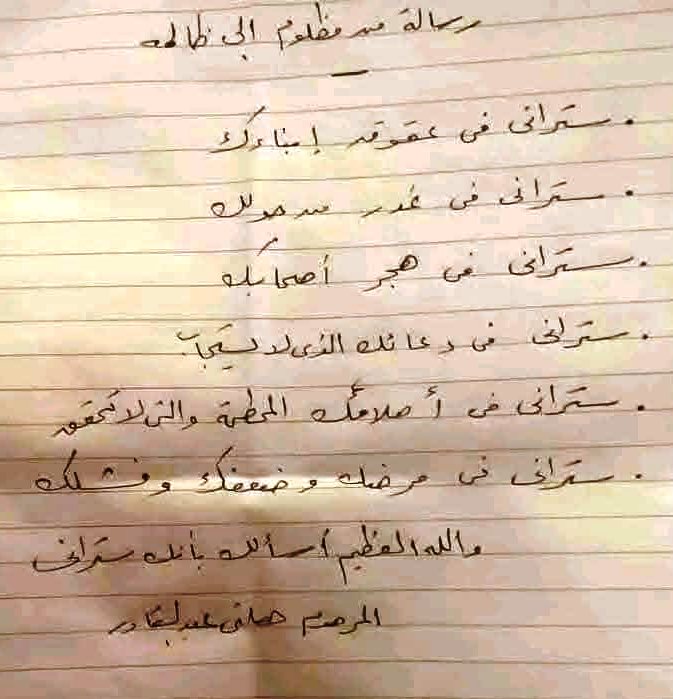 رسالة من مظلوم إلى ظالمه
. ستراني في عقوقه إبناءك
. ستراني في غدر من حولك
. ستراني في هجر أصحابك
. ستراني في دعائك الذي لا يستجاب
. ستراني في أحلامك المحطمة والتي لا تحقق
. ستراني في مرضك وضعفك وفشلك
والله العظيم أسألك بأنك ستراني
المرحوم عبدالقادر